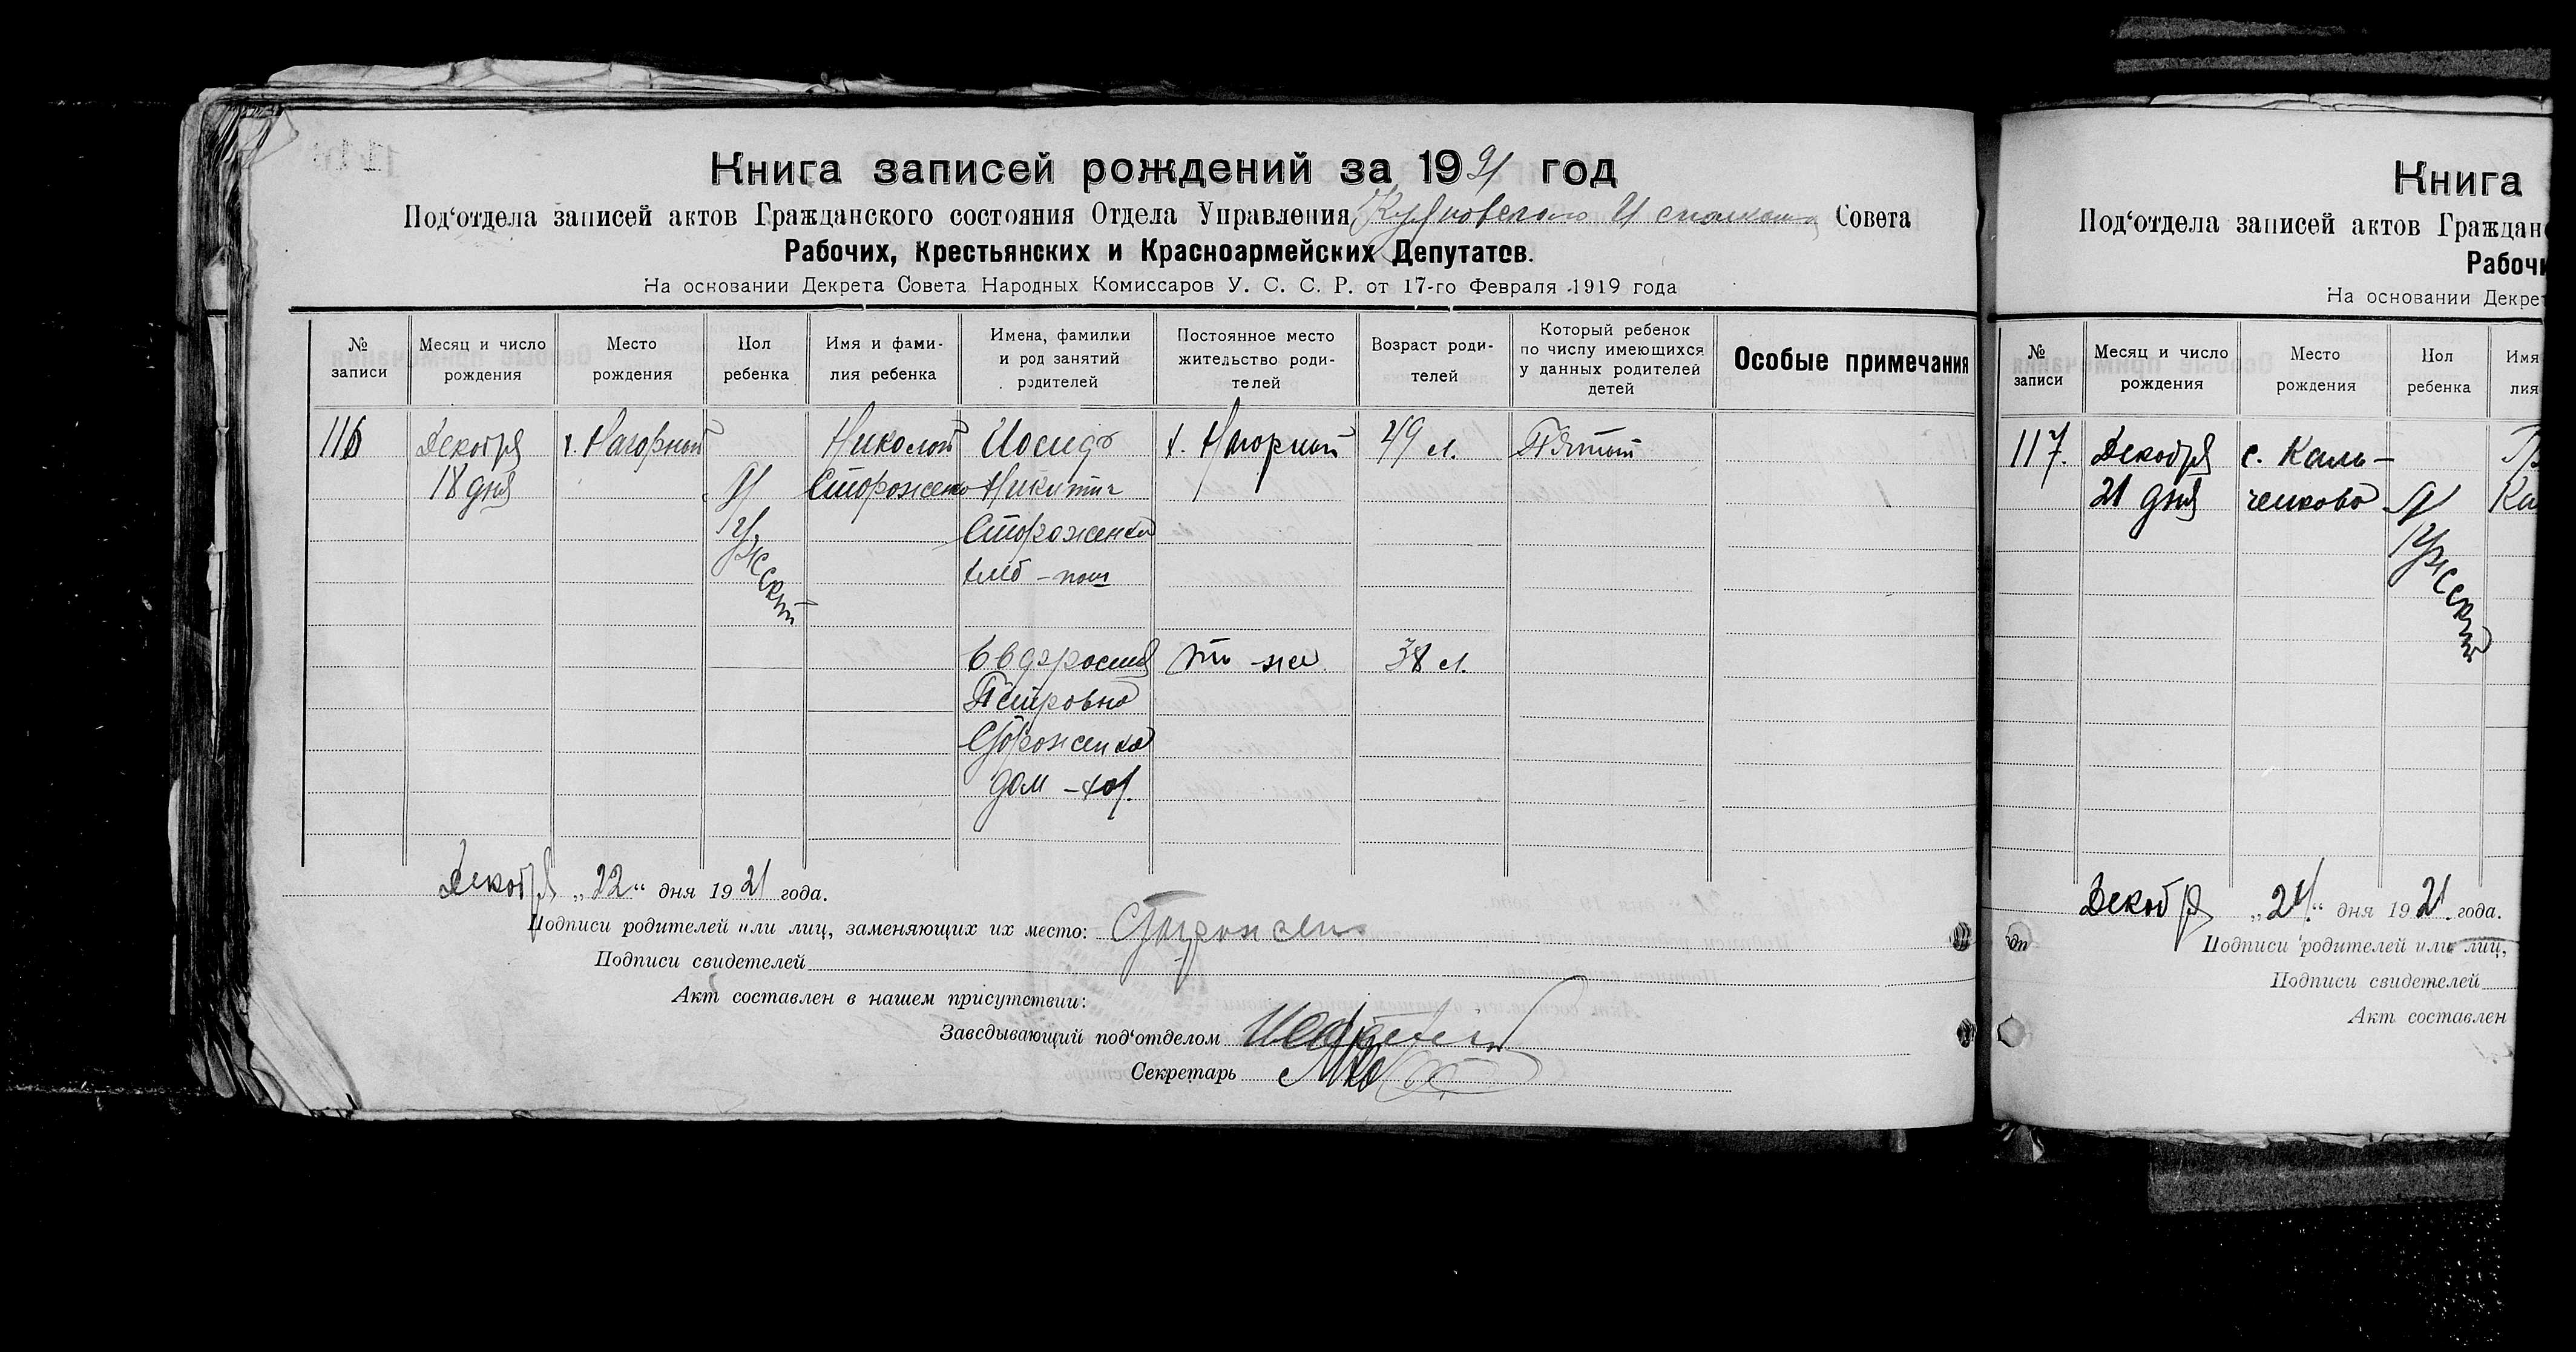 Книга записей рождений за 1921 год
Под‘отдела записей актов Гражданского состояния Отдела Управления Совета
Рабочих, Крестьянских и Красноармейских Депутатов.
На основании Декрета Совета Народных Комиссаров У. С. С. Р. от 17-го Февраля 1919 года
№ записи
Месяц и число рождения
Место рождения
Пол ребенка
Имя и фами-
лия ребенка
Имена, фамилии
и род занятий
родителей
Постоянное место
жительство роди-
телей
Возраст роди-
телей
Который ребенок
по числу имеющихся
у данных родителей
детей
Особые примечания
116 Декабря х. Нагорный Николай Иосиф х. Нагорный 49 л. Пятый
18 дня Мужский Стороженко Никитич
Стороженко
хлеб-паш
Евдросия то-же 38 л.
Петровна
Стороженко
дом-хоз.
Декабря „22“ дня 1921 года.
Подписи родителей или лиц, заменяющих их место:
Подписи свидетелей
Акт составлен в нашем присутствии:
Заведывающий под‘отделом
Секретарь
Книга
Под‘отдела записей актов Граждан
Рабочи
На основании Декрет
№ записи
Месяц и число рождения
Место рождения
Пол ребенка
Имя
лия
117. Декабря с. Каль-
21 дня ченково Мужеский
Декабря „24“ дня 1921 года.
Подписи родителей или лиц,
Подписи свидетелей
Акт составлен